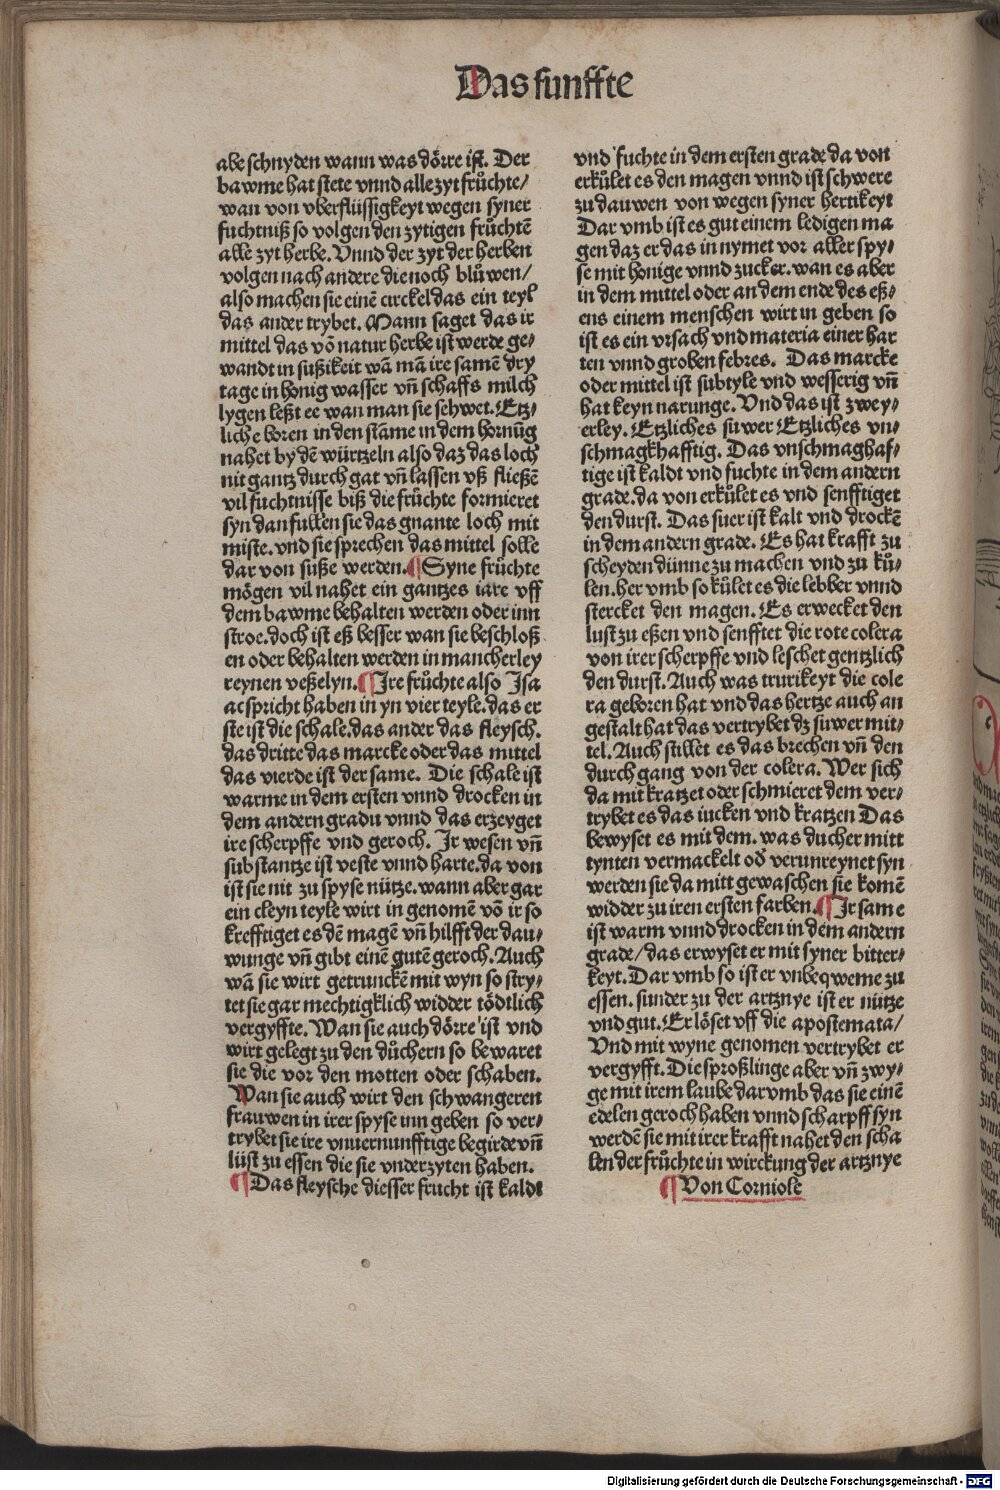 Das funffte
abe schnyden wann was dörre ist. Der
bawme hat stete vnnd alle zyt frůchte/
wan von vberflüssigkeyt wegen syner
fuchtniß so volgen den zytigen frůchtē
alle zyt herbe. Vnnd der zyt der herben
volgen nach andere die noch blůwen/
also machen sie einē circkel das ein teyl
das ander trybet. Mann saget das ir
mittel das vō natur herbe ist werde ge⸗
wandt in sußikeit wā mā ire samē dry
tage in honig wasser vñ schaffs milch
lygen leßt ee wan man sie sehwet. Etz⸗
liche boren in den stāme in dem hornūg
nahet by dē würtzeln also daz das loch
nit gantz durch gat vñ lassen vß fließē
vil fuchtnisse biß die frůchte formieret
syn dan fullen sie das gnante loch mit
miste. vnd sie sprechen das mittel solle
dar von süße werden. ¶ Syne frůchte
mögen vil nahet ein gantzes iare vff
dem bawme behalten werden oder inn
stroe. doch ist eß besser wan sie beschloß
en oder behalten werden in mancherley
reynen veßelyn. ¶ Ire frůchte also Isa
ac spricht haben in yn vier teyle. das er
ste ist die schale. das ander das fleysch.
das dritte das marcke oder das mittel
das vierde ist der same. Die schale ist
warme in dem ersten vnnd drocken in
dem andern gradu vnnd das erzeyget
ire scherpffe vnd geroch. Ir wesen vñ
substantze ist veste vnnd harte. da von
ist sie nit zu spyse nütze. wann aber gar
ein cleyn teyle wirt in genomē vō ir so
krefftiget es dē magē vñ hilfft der dau⸗
wunge vñ gibt einē gutē geroch. Auch
wā sie wirt getrunckē mit wyn so stry⸗
tet sie gar mechtigklich widder tödtlich
vergyffte. Wan sie auch dörre ist vnd
wirt gelegt zu den důchern so bewaret
sie die vor den motten oder schaben.
Wan sie auch wirt den schwangeren
frauwen in irer spyse inn geben so ver⸗
trybet sie ire vnuernunfftige begirde vñ
lüst zu essen die sie vnderzyten haben.
¶ Das fleysche diesser frucht ist kaldt
vnd fuchte in dem ersten grade da von
erkůlet es den magen vnnd ist schwere
zu dauwen von wegen syner hertikeyt
Dar vmb ist es gut einem ledigen ma
gen daz er das in nymet vor aller spy⸗
se mit honige vnnd zucker. wan es aber
in dem mittel oder an dem ende des eß⸗
ens einem menschen wirt in geben so
ist es ein vrsach vnd materia einer har
ten vnnd groben febres. Das marcke
oder mittel ist subtyle vnd wesserig vñ
hat keyn narunge. Vnd das ist zwey⸗
erley. Etzliches suwer Etzliches vn⸗
schmagkhafftig. Das vnschmaghaf⸗
tige ist kaldt vnd fuchte in dem andern
grade. da von erkůlet es vnd senfftiget
den durst. Das suer ist kalt vnd drockē
in dem andern grade. Es hat krafft zu
scheyden dünne zu machen vnd zu ků⸗
len. her vmb so kůlet es die lebber vnnd
stercket den magen. Es erwecket den
lust zu eßen vnd senfftet die rote colera
von irer scherpffe vnd leschet gentzlich
den durst. Auch was trurikeyt die cole
ra geboren hat vnd das hertze auch an
gestalt hat das vertrybet dz suwer mit⸗
tel. Auch stillet es das brechen vñ den
durch gang von der colera. Wer sich
da mit kratzet oder schmieret dem ver⸗
trybet es das iucken vnd kratzen Das
bewyset es mit dem. was ducher mitt
tynten vermackelt oď verunreynet syn
werden sie da mitt gewaschen sie komē
widder zu iren ersten farben. ¶ Ir same
ist warm vnnd drocken in dem andern
grade/ das erwyset er mit syner bitter⸗
keyt. Dar vmb so ist er vnbeqweme zu
essen. sunder zu der artznye ist er nütze
vnd gut. Er löset vff die apostemata/
Vnd mit wyne genomen vertrybet er
vergyfft. Die sproßlinge aber vñ zwy⸗
ge mit irem laube darvmb das sie einē
edelen geroch haben vnnd scharpff syn
werdē sie mit irer krafft nahet den scha
len der frůchte in wirckung der artznye
¶ Von Corniole
Digitalisierung gefördert durch die Deutsche Forschungsgemeinschaft - DFG